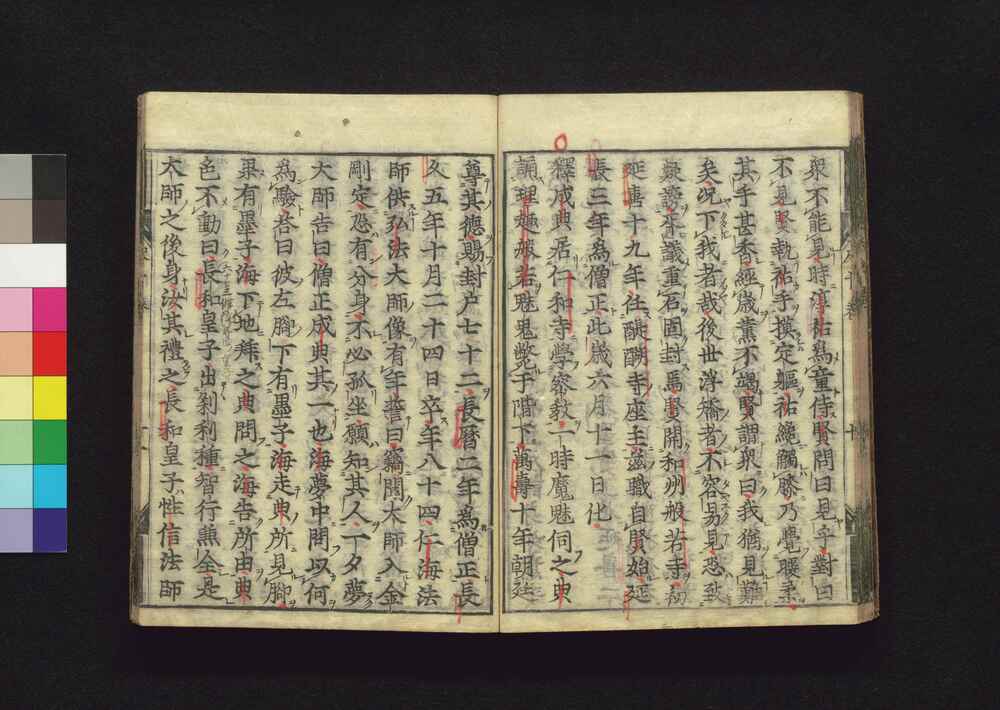 衆不能見時淳祐爲童侍賢問曰見乎對曰
不見賢執祐手摸定軀祐纔觸膝乃覺暖柔
其手甚香經歲薰不竭賢謂衆曰我猶見難
矣況下我者哉後世浮矯者不容易見恐致
疑謗乎議重石固封焉賢開和州般若寺初
延喜十九年任醍醐寺座主兹職自賢始延
長三年爲僧正此歲六月十一日化
釋成典居仁和寺學密教一時魔魅伺之典
誦理趣般若魅鬼斃于階下萬壽十年朝廷
尊其德賜封户七十二長曆二年爲僧正長
久五年十月二十四日卒年八十四仁海法
師供弘法大師像有年誓曰竊聞大師入金
剛定恐有分身不必孤坐願知其人一夕夢
大師告曰僧正成典其一也海夢中問以何
爲驗答曰彼左脚下有墨子海走典所見脚
果有墨子海下地拜之典問之海告所由典
色不動曰長和皇子出刹利種智行兼全是
大師之後身汝其禮之長和皇子性信法師